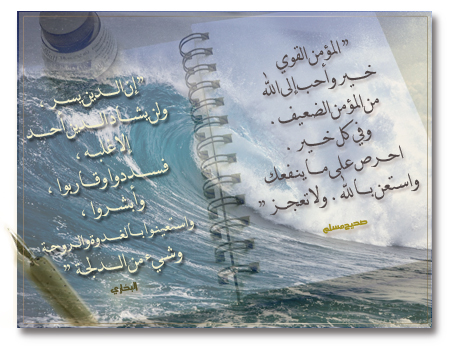 " المؤمن القوي
خير وأحب إلى الله
من المؤمن الضعيف .
وفي كل خير .
احرص على ما ينفعك
واستعن بالله . ولا تعجز "
صحيح مسلم
" إن الدين يسر
ولن يشاد الدين أحد
إلا غلبه ،
فسددوا وقاربوا ،
وأبشروا ،
واستعينوا بالغدوة والروحة
وشيء من الدلجة "
البخاري